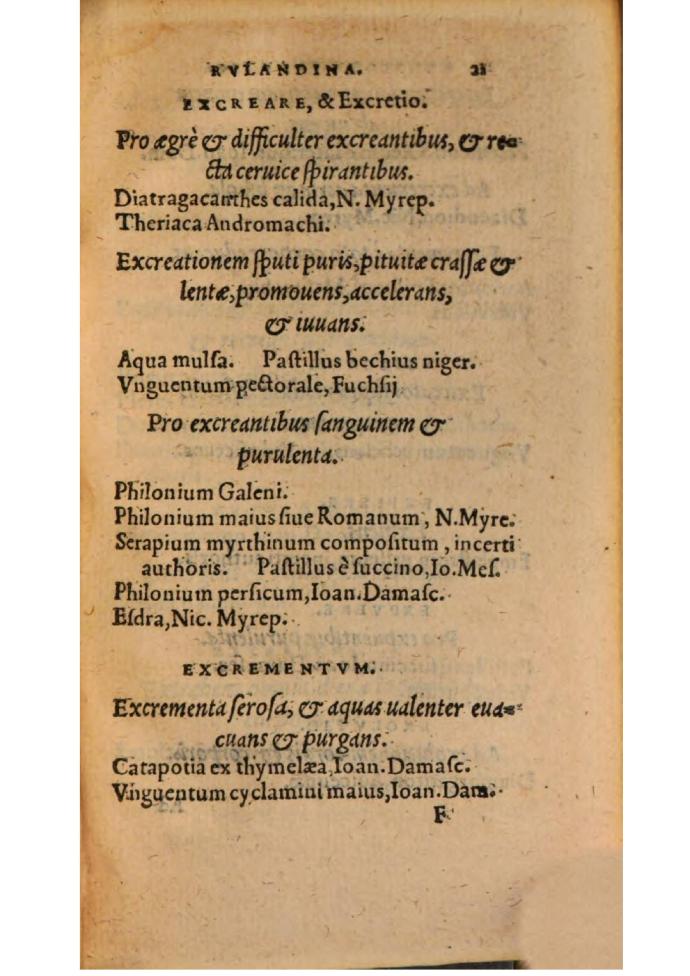 RVLANDINA. 21
EXCREARE, & Excretio.
Pro ægrè & difficulter excreantibus, & re-
cta ceruice ſpirantibus.
Diatragacanthes calida, N. Myrep.
Theriaca Andromachi.
Excreationem ſputi puris, pituitæ craſſæ &
lentæ, promouens, accelerans,
& iuuans.
Aqua mulſa. Paſtillus bechius niger.
Vnguentum pectorale, Fuchſij
Pro excreantibus ſanguinem &
purulenta.
Philonium Galeni.
Philonium maius ſiue Romanum, N. Myre.
Serapium myrthinum compoſitum, incerti
authoris. Paſtillus è ſuccino, Io. Meſ.
Philonium perſicum, Ioan. Damaſc.
Eſdra, Nic. Myrep.
EXCREMENTVM.
Excrementa ſeroſa, & aquas ualenter eua-
cuans & purgans.
Catapotia ex thymelæa, Ioan. Damaſc.
Vnguentum cyclamini maius, Ioan. Dam.
F